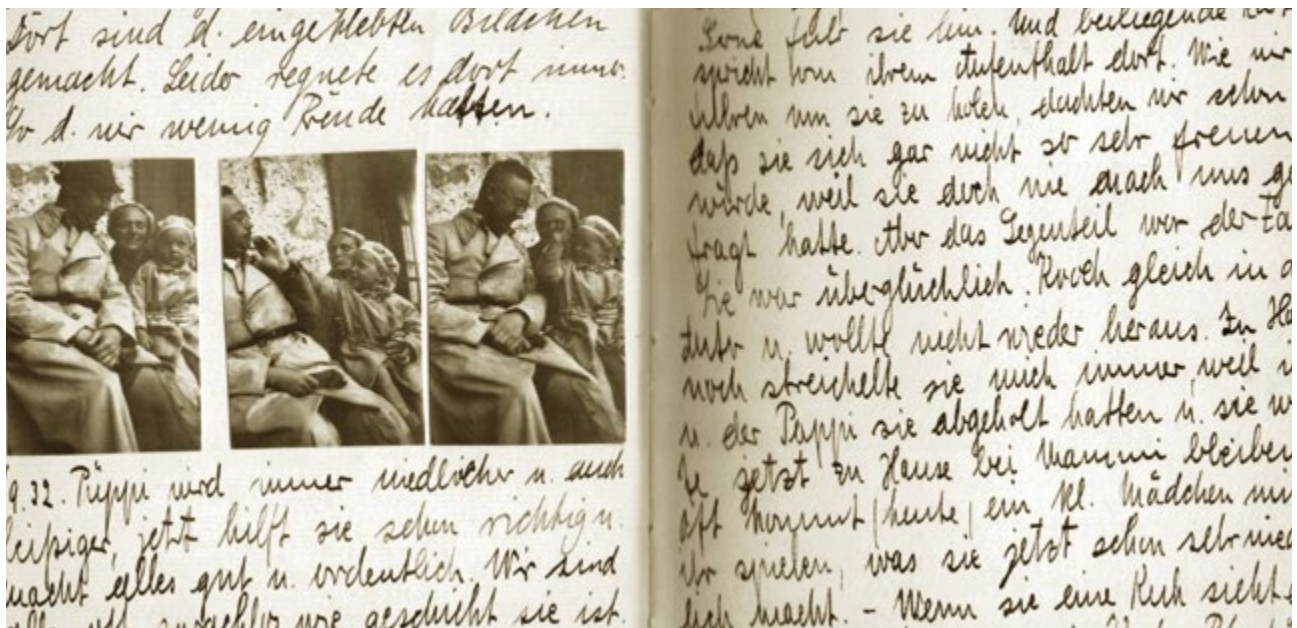 Dort sind d. eingeklebten Bildchen
gemacht. Leider regnete es dort immer.
So d. wir wenig Freude hatten.
9. 32. Püppi wird immer niedlicher u. auch
fleißiger, jetzt hilft sie schon richtig u.
macht alles gut u. ordentlich. Wir sind
oft wie geschickt sie ist.
sie hin. Und beiliegende
spricht von ihrem Aufenthalt dort. Wie wir
fuhren um sie zu holen, dachten wir schon
daß sie sich gar nicht so sehr freuen
würde, weil sie doch nie nach uns ge
fragt hatte. Aber das Gegenteil war der Fa
Sie war überglücklich. Kroch gleich in d
Auto u. wollte nicht wieder heraus. Zu Ha
noch streichelte sie mich immer, weil
u. der Pappi sie abgeholt hatten u. sie w
de jetzt zu Hause bei Mammi bleiben
Oft kommt (heute) ein kl. Mädchen mi
ihr spielen, was sie jetzt schon sehr nied
lich macht. - Wenn sie eine Kuh sieht